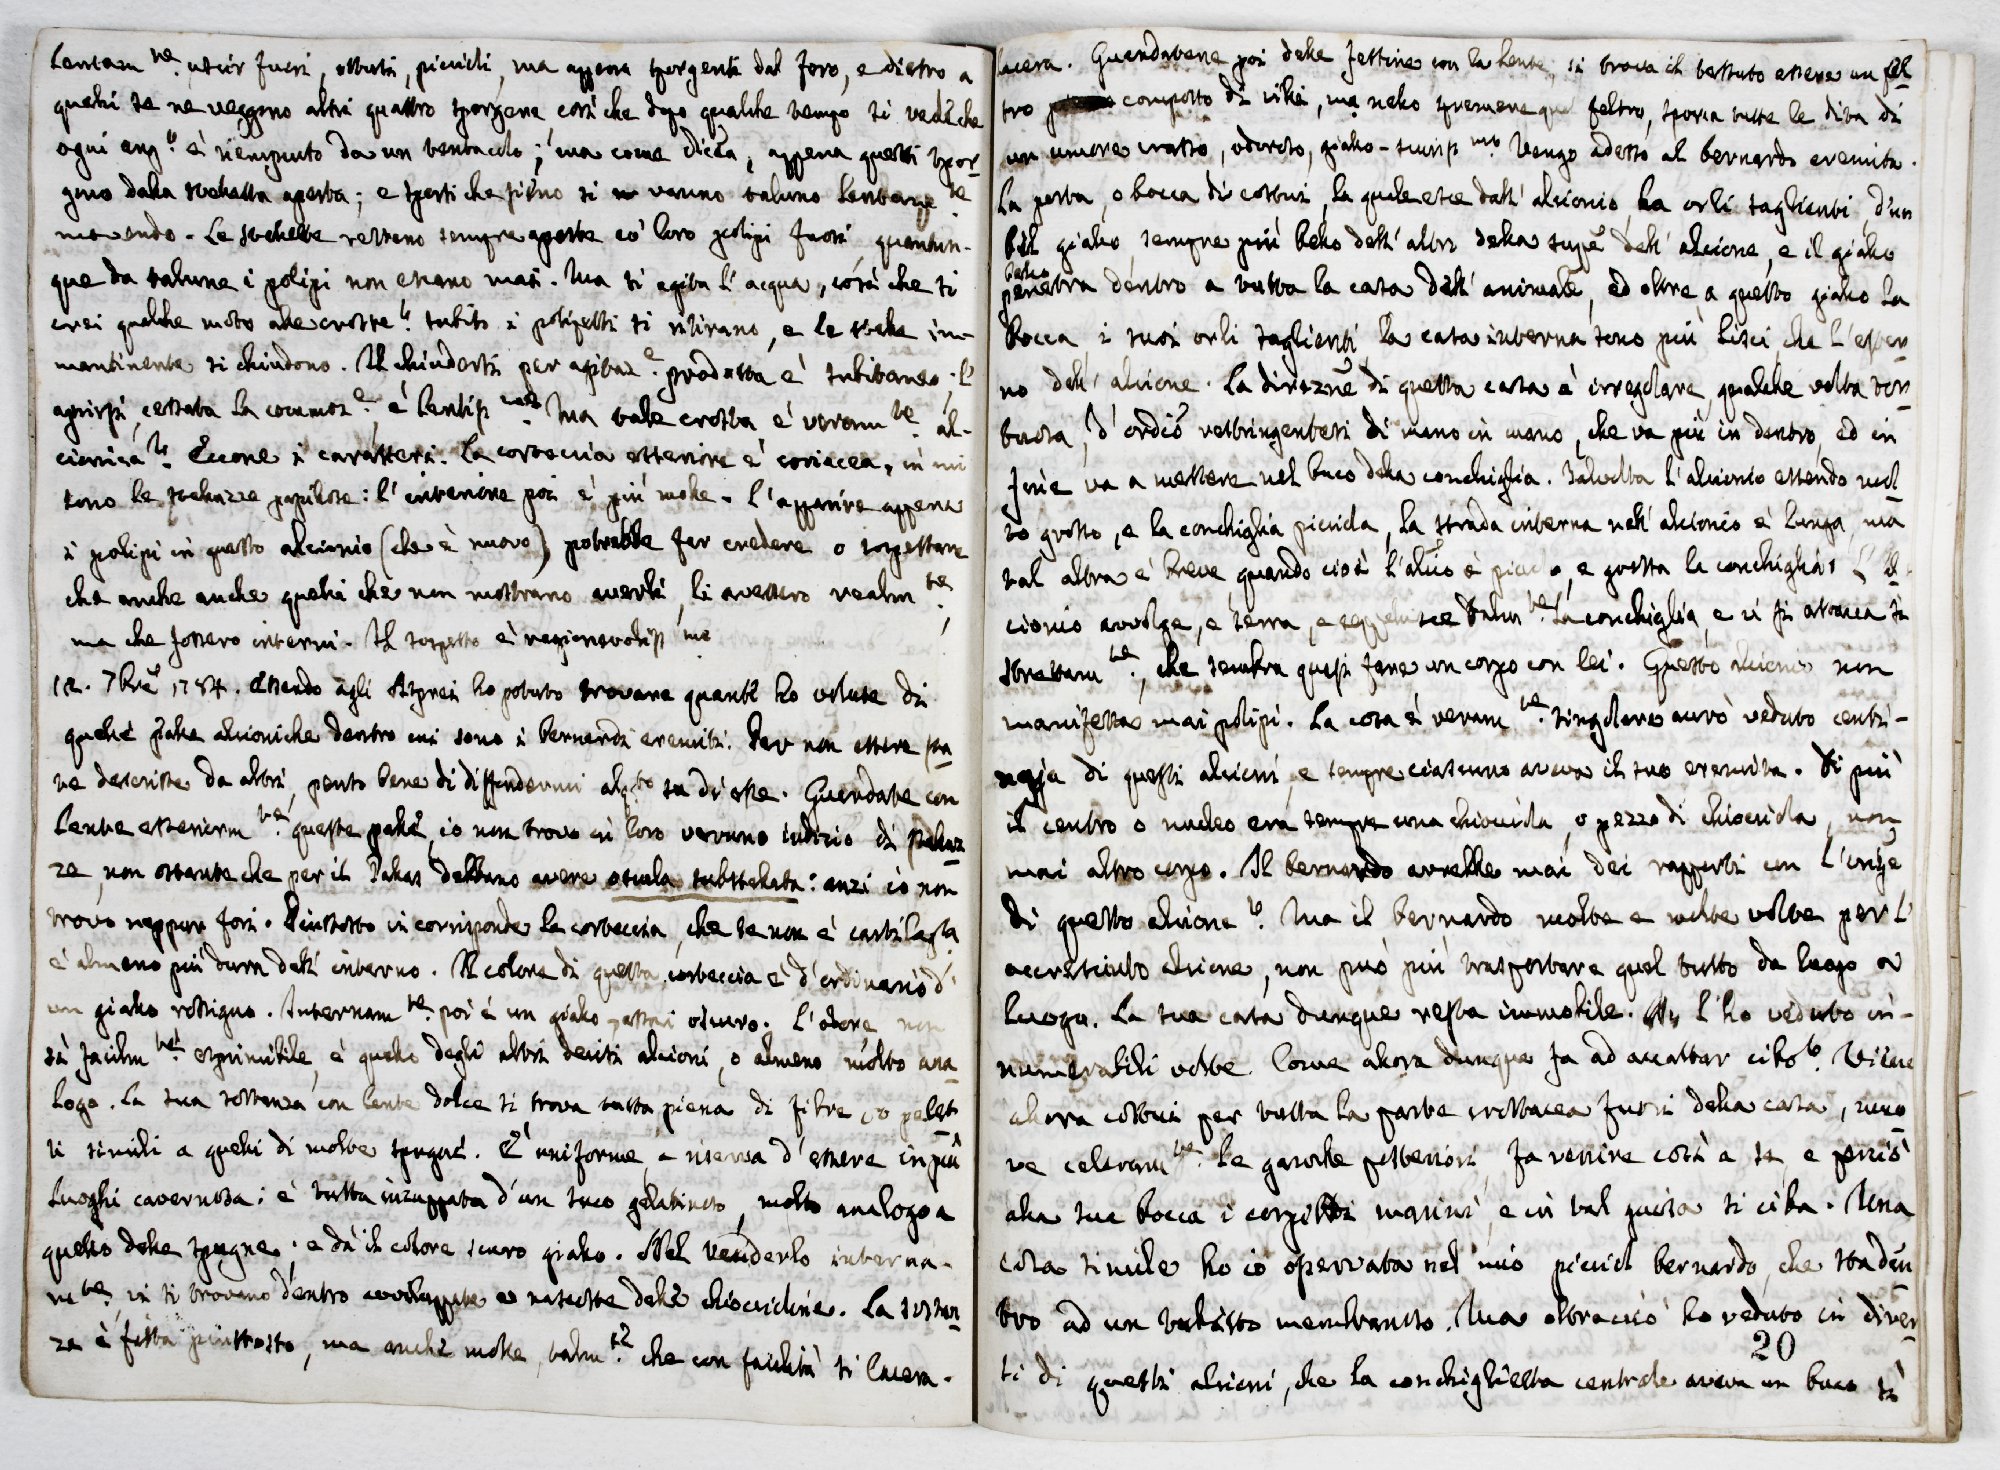 Lentam.te uscir fuori, ottusi, piccioli, ma appena sporgenti dal foro, e dietro a
quelli se ne veggono altri quattro sporgere così che dopo qualche tempo si vede che
ogni ang.o è riempiuto da un tentacolo; ma come dicea, appena questi spor
gono dalla stelletta aperta; e sporti che sieno si vanno taluno lentam.te
movendo. Le stellette restano sempre aperte co' loro polipi fuori, quantun-
que da talune i polipi non escano mai. Ma si agita l'acqua, così che si
crei qualche moto alle croste.le subito i polipetti si ritirano, e le stelle im-
mantinente si chiudono. Il chiudersi per agitaz.e prodotta è subitaneo; l'
aprirsi, cessata la commoz.e, è lentiss.mo Ma tale crosta è veram.te al-
cionica.le Eccone i caratteri. La corteccia esteriore è coriacea, in cui
sono le stellazze papillose: l'interiore poi è più molle. L'apparire appena
i polipi in questo alcionio (che è nuovo) potrebbe far credere o sospettare
che anche anche quelli che non mostrano averli, li avessero realm.te,
ma che fossero interni. Il sospetto è ragionevoliss.mo
12. 7bre 1784. Essendo agli Argrei ho potuto trovare quanti ho voluto di
quelle palle alcioniche dentro cui sono i bernardi eremiti. Per non essere sta
te descritte da altri, penso bene di diffondermi alq.to su di esse. Guardate con
lente esteriorm.te queste palle, io non trovo in loro veruno indizio di stellaz
ze, non ostante che per il Pallas debbano avere oscula substellata: anzi io non
trovo neppur fori. Piuttosto vi corrisponde la corteccia, che se non è cartilag.a
è almeno più dura dell'interno. Il colore di questa corteccia è d'ordinario d'
un giallo rossigno. Internam.te poi è un giallo assai oscuro. L'odore non
sì facilm.te esprimibile, è quello degli altri decisi alcioni, o almeno molto ana
logo. La sua sostanza con lente dolce si trova tutta piena di fibre, o pelet
ti simili a quelli di molte spugne. È uniforme, a riserva d'essere in più
luoghi cavernosa: è tutta inzuppata d'un suco gelatinoso, molto analogo a
quello delle spugne, e dà il colore scuro giallo. Nel venderlo interna-
m.te, vi si trovano dentro avviluppate e nascoste delle chioccioline. La sostan
za è fitta piuttosto, ma anche molle, talm.te che con facilità si lacera.
lacera. Guardatene poi delle fettine con la lente, si trova il tessuto essere un fel
tro composto di villi, ma nello spremere quel feltro, sporca tutte le dita di
un umore crasso, odoroso, giallo-scuriss.mo Vengo adesso al bernardo eremita.
La porta, o bocca di costui, la quale esce dall'alcionio, ha orli taglienti, d'un
bel giallo, sempre più bello dell'altro della supe. dell'alcione, e il giallo
bello
penetra dentro a tutta la casa dell'animale, ed oltre a questo giallo la
bocca, i suoi orli taglienti, la casa interna sono più lisci che l'ester
no dell'alcione. La direzne. di questa casa è irregolare, qualche volta tor
tuosa, d'ordio. restringentesi di mano in mano, che va più in dentro, ed in
fine va a mettere nel buco della conchiglia. Talvolta l'alcionio essendo mol
to grosso, e la conchiglia picciola, la strada interna nell'alcionio è lunga, ma
tal altra è breve, quando cioè l'alcio. è picciolo, e grossa la conchiglia. L'al
cionio avvolge, e serra, e seppelisce talm.te la conchiglia, e vi si attacca sì
strettam.te, che sembra quasi fare un corpo con lei. Questo alcione non
manifesta mai polipi. La cosa è veram.te singolare avrò veduto centi-
naja di questi alcioni, e sempre ciascuno aveva il suo eremita. Di più
il centro o nucleo era sempre una chiocciola, o pezzo di chiocciola, non
mai altro corpo. Il bernardo avrebbe mai dei rapporti con l'orige.
di questo alcione.le Ma il bernardo molte e molte volte per l'
accresciuto alcione, non può più trasportare quel tutto da luogo a
luogo. La sua casa dunque resta immobile. L'ho veduto in-
numerabili volte. Come allora dunque fa ad accattar cibo.le Viene
allora costui per tutta la parte crostacea fuori della casa, muo
ve celeram.te le ganoche posteriori, fa venire così a se, e perciò
alla sua bocca i corpicelli marini, e in tal guisa si ciba. Una
cosa simile ho io osservata nel mio picciol bernardo, che sta den
tro ad un tubetto membranoso. Ma oltracciò ho veduto in diver
20
si di questi alcioni, che la conchiglietta centrale aveva un buco sì